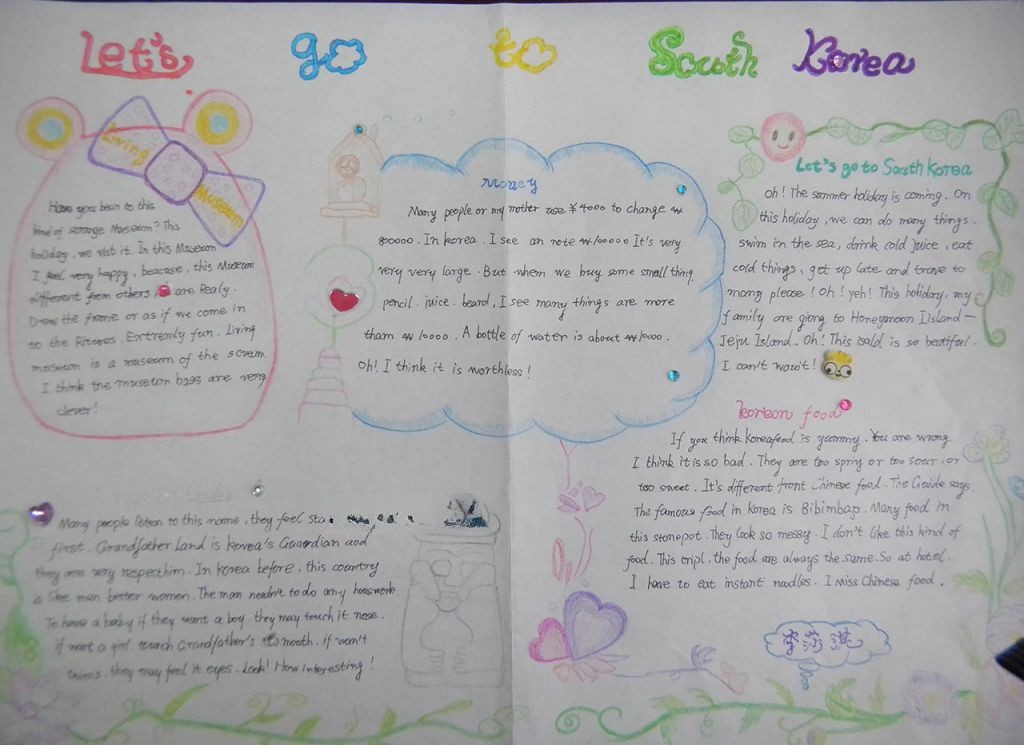 Let's go to South Korea
Living
Museum
Have you been to this
kind of strange Museum? This
holiday, we visit it. In this Museum
I feel very happy, beacuse, this Museum
different from others are Realy.
Drow the frome or as if we come in
to the Pitures. Extremly fun. Living
museum is a museum of the
I think the museum boss are very
clever!
Money
Many people or my mother use ¥4000 to change ₩
800000. In korea. I see an note ₩10000 It's very
very very large. But when we buy some small thing.
pencil. juice. beard, I see many things are more
than ₩10000. A bottle of water is about ₩1000.
Oh! I think it is worthless!
Let's go to South Korea
Oh! The summer holiday is coming. On
this holiday, we can do many things.
swim in the sea, drink cold juice, eat
cold things, get up late and trave to
many please! Oh! yeh! This holiday, my
family are giong to Honeymoon Iisland—
Jeju Island. Oh! This isald is so beatiful.
I can't wait!
korean food
If you think koreafood is yummy. You are wrong
I think it is so bad. They are too spriy or too sour, or
too sweet. It's different front Chinese food. The Guide says.
The famous food in Korea is Bibimbap. Many food in
this stonepot. They look so messy. I don't like this kind of
food. This tripl. the food are always the same. So at hotel.
I have to eat instant noodles. I miss Chinese food.
Many people listen to this name, they feel
first. Grandfather Land is Korea's Guardian and
they are very respecthim. In Korea before, this country
is like men better women. The man needn't to do any housework.
To have a baby if they want a boy. they may touch it nose.
if want a girl. touch Grandfather's mouth. if won't
twins, they may feel it eyes. Look! How interesting!
李莎淇